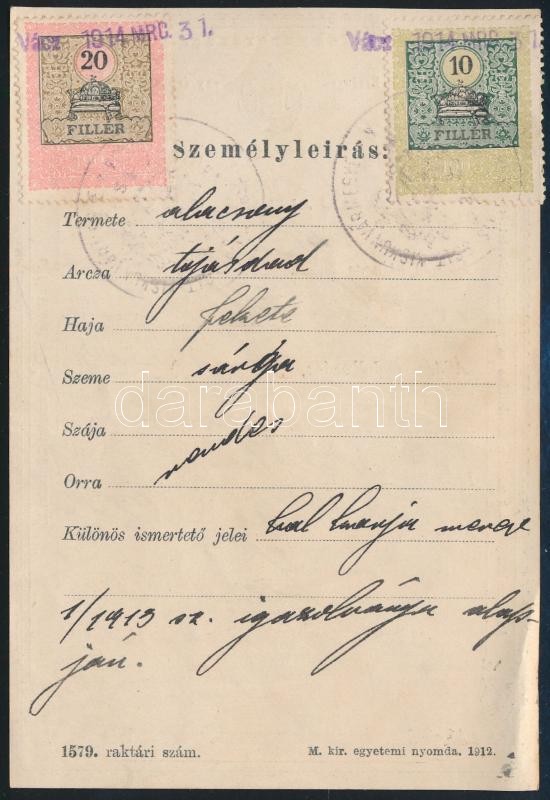 Vácz 1914 MRC. 31.
Vácz 1914 MRC. 31.
20
FILLÉR
10
FILLÉR
Személyleirás:
Termete alacsony
Arcza tojásdad
Haja fekete
Szeme sárga
Szája
rendes
Orra
Különös ismertető jelei bal karja merev
1/1913 sz. igazolványa alap-
ján.
darabanth
1579. raktári szám.
M. kir. egyetemi nyomda. 1912.